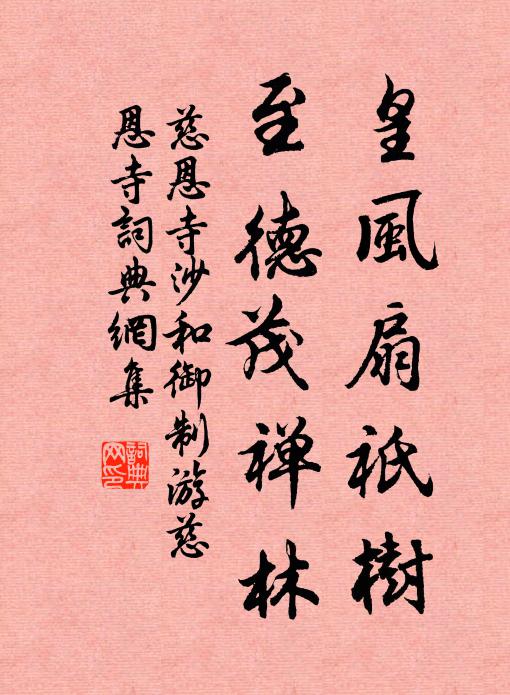 皇風扇祇樹
至德茂禅林
慈恩寺沙和御制游慈
恩寺詞典網集
詞典網印